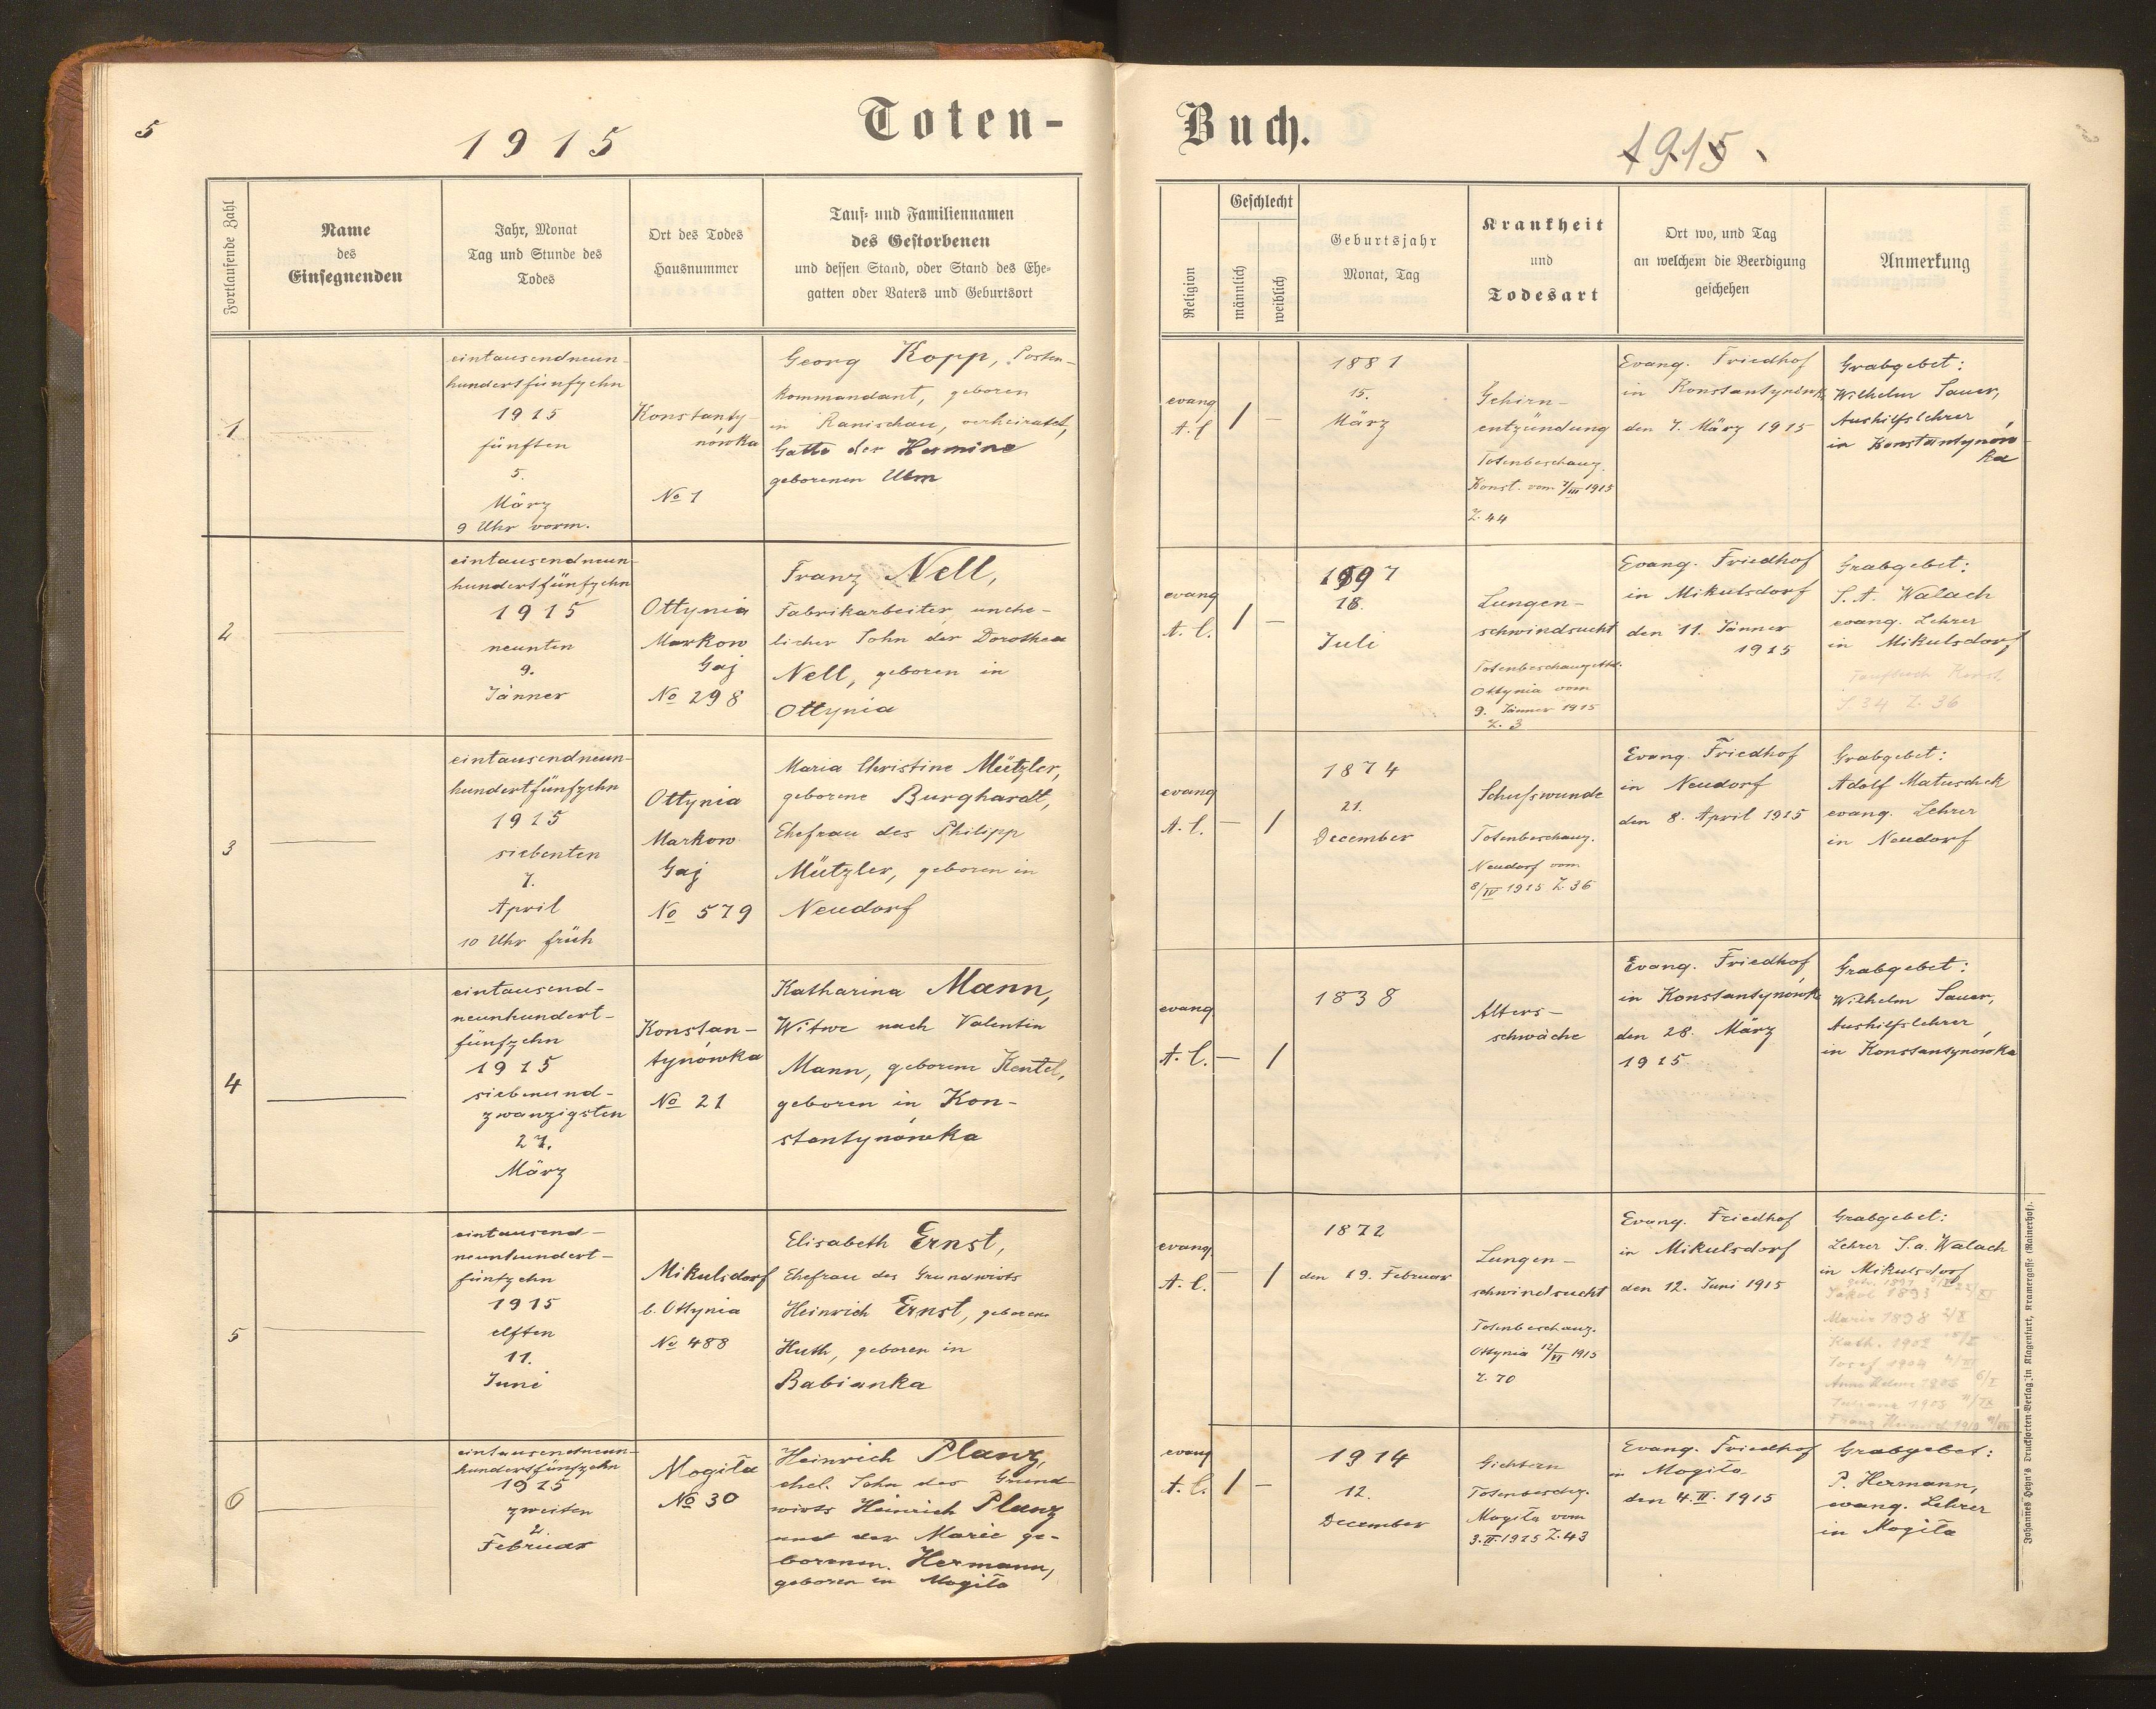 5
1915
Toten-
Fortlaufende Zahl
Name
des
Einsegnenden
Jahr, Monat
Tag und Stunde des
Todes
Ort des Todes
Hausnummer
Tauf- und Familiennamen
des Gestorbenen
und dessen Stand, oder Stand des Ehe-
gatten oder Vaters und Geburtsort
1
eintausendneun-
hundertfünfzehn
1915
fünften
5.
März
9 Uhr vorm.
Konstanty-
nówka
No 1
Georg Kopp, Posten-
kommandant, geboren
in Ranischau, verheiratet,
Gatte der Hermine
geborenen Ulm
2
eintausendneun-
hundertfünfzehn
1915
neunten
9.
Jänner
Ottynia
Markow
Gaj
No 298
Franz Nell,
Fabrikarbeiter, unehe-
licher Sohn der Dorothea
Nell, geboren in
Ottynia
3
eintausendneun-
hundertfünfzehn
1915
siebenten
7.
April
10 Uhr früh
Ottynia
Markow
Gaj
No 579
Maria Christine Mützler,
geborene Burghardt,
Ehefrau des Philipp
Mützler, geboren in
Neudorf
4
eintausend-
neunhundert-
fünfzehn
1915
siebenund-
zwanzigsten
27.
März
Konstan-
tynówka
No 21
Katharina Mann,
Witwe nach Valentin
Mann, geborene Kentel,
geboren in Kon-
stantynówka
5
eintausend-
neunhundert-
fünfzehn
1915
elften
11.
Juni
Mikulsdorf
b. Ottynia
No 488
Elisabeth Ernst,
Ehefrau des Grundwirts
Heinrich Ernst, geborene
Huth, geboren in
Babianka
6
eintausendneun-
hundertfünfzehn
1915
zweiten
2.
Februar
Mogiła
No 30
Heinrich Planz,
ehel. Sohn des Grund-
wirts Heinrich Planz
und der Marie ge-
borenen Hermann,
geboren in Mogiła
Buch.
1915.
Religion
Geschlecht
männlich
weiblich
Geburtsjahr
Monat, Tag
Krankheit
und
Todesart
Ort wo, und Tag
an welchem die Beerdigung
geschehen
Anmerkung
evang
A. C.
1
—
1881
15.
März
Gehirn-
entzündung
Totenbeschauz.
Konst. vom 7/III 1915
Z. 44
Evang. Friedhof
in Konstantynówk
den 7. März 1915
Grabgebet:
Wilhelm Sauer,
Aushilfslehrer
in Konstantynów-
ka
evang
A. C.
1
—
1897
18.
Juli
Lungen-
schwindsucht
Ottynia vom
9. Jänner 1915
Z. 3
Evang. Friedhof
in Mikulsdorf
den 11. Jänner
1915
Grabgebet:
S. A. Walach
evang. Lehrer
in Mikulsdorf
Taufbuch Konst.
S. 34 Z. 36
evang
A. C.
—
1
1874
21.
December
Schusswunde
Totenbeschauz.
Neudorf vom
8/IV 1915 Z. 36
Evang. Friedhof
in Neudorf
den 8. April 1915
Grabgebet:
Adolf Matuschek
evang. Lehrer
in Neudorf
evang
A. C.
—
1
1838
Alters-
schwäche
Evang. Friedhof
in Konstantynówk
den 28. März
1915
Grabgebet:
Wilhelm Sauer,
Aushilfslehrer
in Konstantynówka
evang
A. C.
—
1
1872
den 19. Februar
Lungen-
schwindsucht
Totenbeschauz.
Ottynia 12/VI 1915
Z. 70
Evang. Friedhof
in Mikulsdorf
den 12. Juni 1915
Grabgebet:
Lehrer S. A. Walach
in Mikulsdorf
Jakob 1893
Marie 1898
Kath. 1902
Josef 1904
evang
A. C.
1
—
1914
12.
December
Gichtern
Totenbeschz.
Mogiła vom
3.II.1915 Z. 43
Evang. Friedhof
in Mogiła
den 4.II.1915
Grabgebet:
P. Hermann,
evang. Lehrer
in Mogiła
Johannes Heyn's Drucksorten-Verlag in Klagenfurt, Kramergasse (Rainerhof).